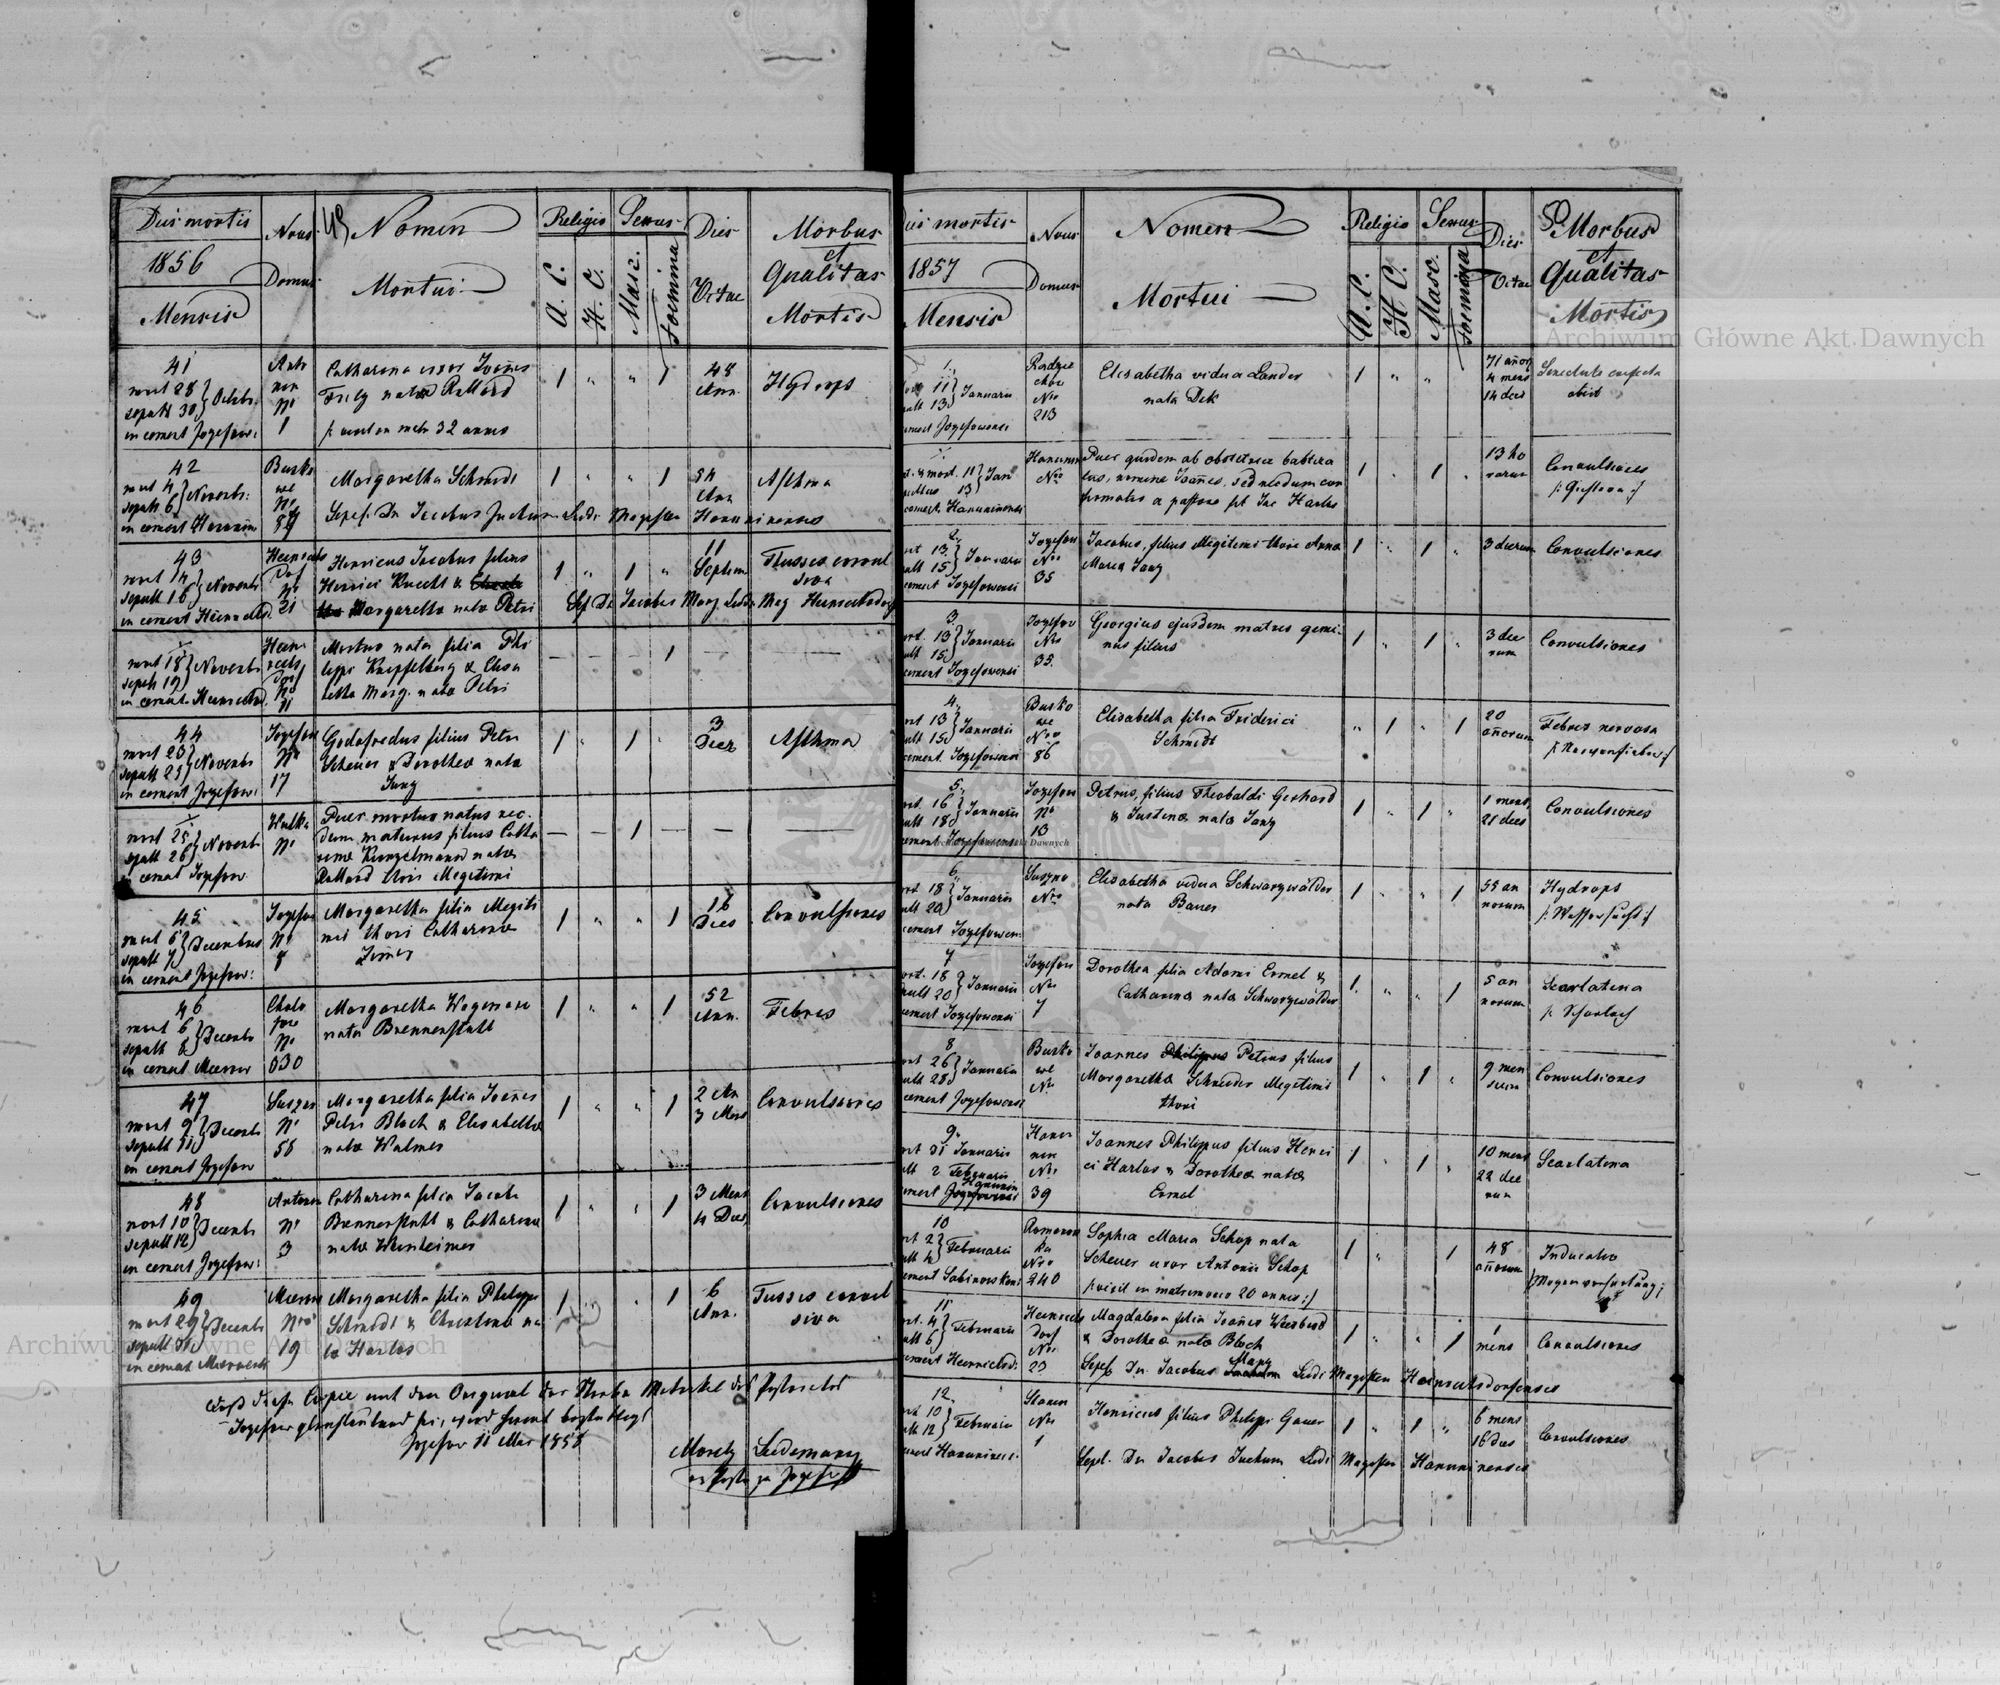 Dies mortis
1856
Mensis
Nrus
Domus
49 Nomen
Mortui
Religio
A. C.
H. C.
Sexus
Masc.
Foemina
Dies
Vitae
Morbus
et
Qualitas
Mortis
41
mort 28
sepult 30 } Octobr.
in cemet Jozefow:
Anto
nin
Nr
1
Catharina uxor Joannes
nata Rallard
32 annis
1 " " 1
48
Ann.
Hydrops
42
mort 4
sepult 6 } Novembr:
in cemet Hanunin
Busko
we
Nr
Margaretha Schmidt
Sepel. Dn Jacobus Juchum Ludi Magister Hanuninensis
1 " " 1
54
Ann
Asthma
43
mort 14
sepult 16 } Novembr
in cemet Heinrichsd.
Heinrichs
Dorf
Nr
21
Henricus Jacobus filius
Henrici Knecht &
Margaretha nata Petri
Sep Dn Jacobus Mang Ludi Mag Heinrichsdorf
1 " 1 "
11
Septem
Tusses convul
siva
mort 18
sepult 19 } Novembr
in cemet Heinrichsd.
Hein
richs
Dorf
No
11
Mortuo nata filia Phi
lippi Knipfelberg & Elisa
betha Marg. nata Petri
— — — 1 — —
44
mort 23
sepult 25 } Novembr
in cemet Jozefow:
Jozefow
Nr
17
Godofredus filius Petri
Scheuer & Dorothea nata
Jung
1 " 1 "
3
Dier
Asthma
mort 25
sepult 26 } Novembr
in cemet Jozefow
Wulka
Nr
Puer mortuo natus nec
dum maturus filius Catha
rina Kunzelmann nata
Rallard thori illegitimi
— — 1 — — —
45
mort 6
sepult 7 } Decembris
in cemet Jozefow:
Jozefow
Nr
8
Margaretha filia illegiti
mi thori Catharina
1 " " 1
16
Dies
Convulsiones
46
mort 6
sepult 8 } Decembr
in cemet Mierow
Nr
630
Margaretha Wagemann
nata Brennerstuhl
1 " " 1
52
Ann.
Febris
47
mort 9
sepult 11 } Decembr
in cemet Jozefow
Suszno
Nr
58
Margaretha filia Joannes
Petri Bloch & Elisabetha
nata Walmer
1 " " 1
2 An
3 Mens
Convulsiones
48
mort 10
sepult 12 } Decembr
in cemet Jozefow:
Antonin
Nr
3
Catharina filia Jacobi
Brennerstuhl & Catharina
nata Weinheimer
1 " " 1
3 Mens
4 Dies
Convulsiones
49
mort 29
sepult 31 } Decembr
in cemet Mierow
Mierow
Nro
19
Margaretha filia Philippi
Schmidt & Christina na
ta Harlos
1 " 1
6
Ann.
Tusses convul
siva
Daß diese Copie mit dem Original der Sterbe Matrikel des Pastorates
Jozefow gleichlautend sei, wird hiemit bestättigt
Jozefow 11 Mai 1858
Moritz
Dies mortis
1857
Mensis
Nrus
Domus
Nomen
Mortui
Religio
A. C.
H. C.
Sexus
Masc.
Foemina
Dies
Vitae
50 Morbus
et
Qualitas
Mortis
1.
mort 11
sepult 13 } Januarii
cemet Jozefowensi
Radzie
chow
Nro
213
Elisabetha vidua Lander
nata Dek
1 " "
71 añor
4 mens
14 dies
Senectute confecta
obiit
mort. 11
sepultus 13 } Jan
cemet. Hanuninensi
Hanunin
Nro
Puer quidem ab obstetrice babtiza
tus, nomine Joañes, sed nondum con
firmatus a pastore fil Jac Harlos
1 " 1 "
13 ho
rarum
Convulsiones
2.
mort 13
sepult 15 } Januarii
cemet Jozefowensi
Jozefow
Nro
35
Jacobus, filius illegitimi thori Anna
Maria Jung
1 " 1 "
3 dierum
Convulsiones
3.
mort. 13
sepult 15 } Januarii
cemet Jozefowensi
Jozefow
Nro
35.
Georgius ejusdem matris gemi-
nus filius
1 " 1 "
3 die
rum
Convulsiones
4.
mort 13
sepult 15 } Januarii
cement. Jozefowensi
Busko
we
Nro
86
Elisabetha filia Friderici
Schmidt
" 1 " 1
20
añorum
Febris nervosa
/: Nervenfieber :/
5.
mort. 16
sepult 18 } Januarii
cement Jozefowensi
Jozefow
Nro
13
Petrus, filius Theobaldi Gerhard
& Justina nata Jung
1 " 1 "
1 mens,
21 dies
Convulsiones
6.
mort. 18
sepult 20 } Januarii
cement Jozefowen.
Suszno
Nro
Elisabetha vidua Schwarzwälder
nata Bauer
1 " " 1
55 an
norum
Hydrops
/: Wassersucht :/
7
mort. 18
sepult 20 } Januarii
cement Jozefowensi
Jozefow
Nro
7
Dorothea filia Adami Ermel &
Catharina nata Schwarzwälder
1. " " 1
5 an
norum
Scarlatina
/: Scharlach
8
mort 26
sepult 28 } Januarii
cement Jozefowensi
Busko
we
Nr.
Joannes Philippus Petrus filius
Margaretha Schneider illegitimi
thori
1 " 1 "
9 men
sium
Convulsiones
9.
mort 31 Januarii
sepult 2 Februarii
Hanunin
cement Jozefowensi
Hanu
nin
Nro
39
Joannes Philippus filius Henri
ci Harlos & Dorothea nata
Ermel
1 " 1 "
10 mens
22 die
rum
Scarlatina
10
mort 2
sepult 4 } Februarii
cement Sabinowkensi
Romanow
ka
Nro
240
Sophia Maria Schop nata
Scheuer uxor Antonii Schop
/: vixit in matrimonio 20 annis :/
1 " 1
48
añorum
Induratio
/: Magenverhärtung :/
11
mort. 4
sepult 6 } Februarii
cement Heinrichsd.
Heinrichs
dorf
Nro
23
Magdalena filia Joañes
& Dorothea nata Bloch
Sepel. Dn. Jacobus Mang Ludi Magister Heinrichsdorfensis
1 " " 1
1
mens
Convulsiones
12.
mort 10
sepult 12 } Februarii
cement Hanuninensi.
Stanin
Nro
1
Henricus filius Philippi Gauer
Sepel. Dn Jacobus Juchum Ludi Magister Hanuninensis
1 " 1 "
6 mens
16 dies
Convulsiones
Archiwum Główne Akt Dawnych
Archiwum Główne Akt Dawnych